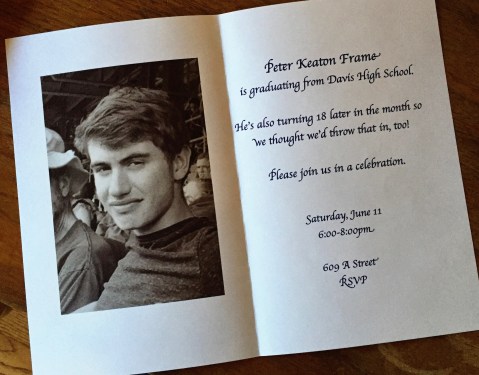 Peter Keaton Frame
is graduating from Davis High School.
He's also turning 18 later in the month so
we thought we'd throw that in, too!
Please join us in a celebration.
Saturday, June 11
6:00-8:00pm
609 A Street
RSVP